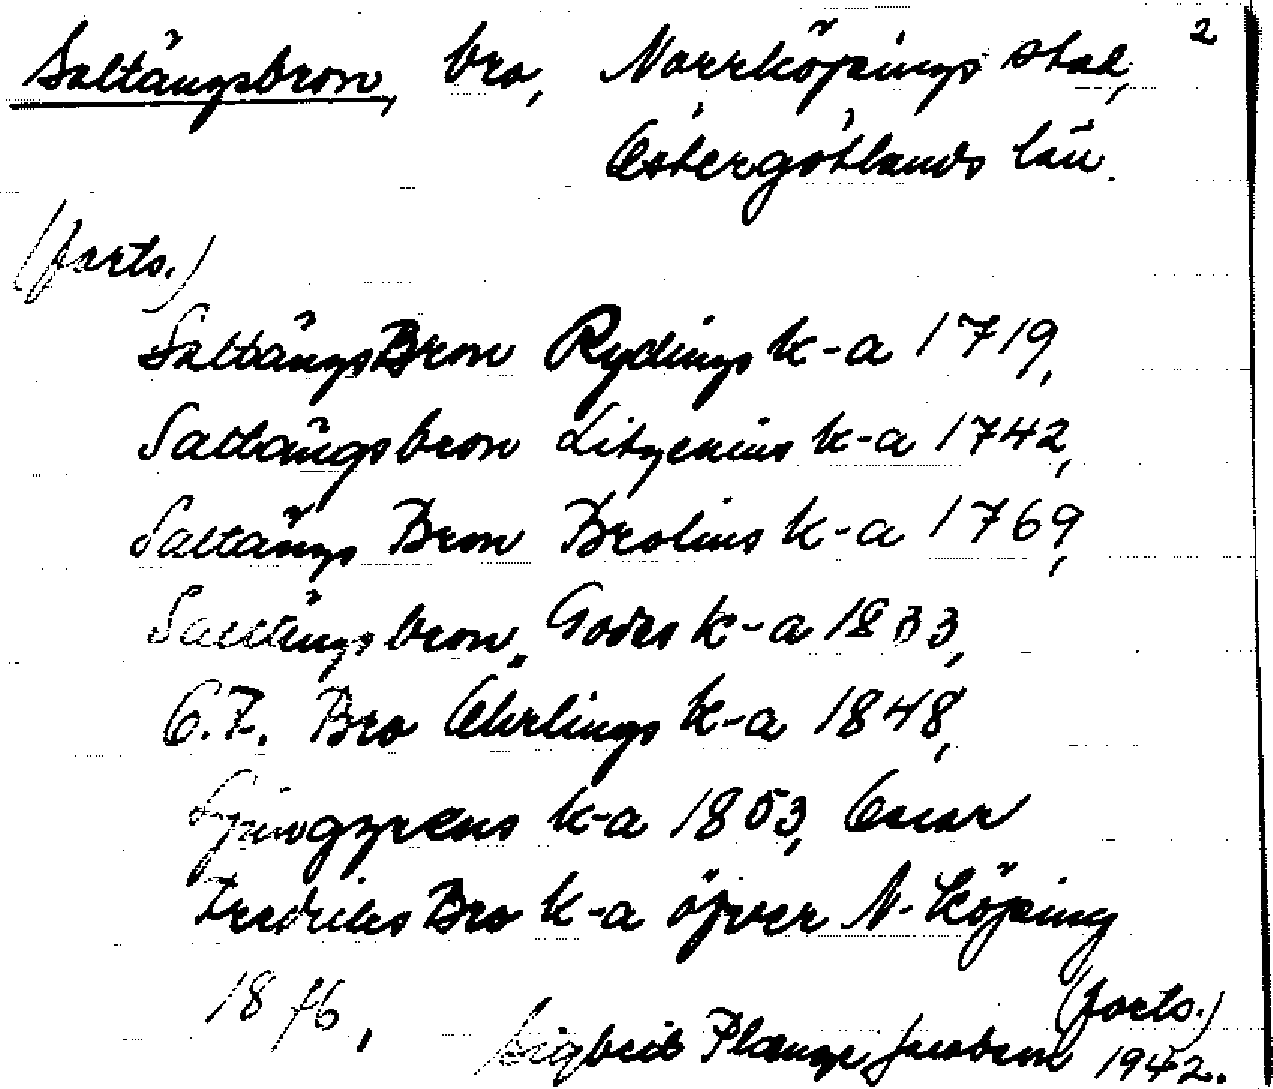 2
Saltängsbron, bro, Norrköpings stad,
Östergötlands län.
(forts.)
SaltängsBron Rydings k-a 1719,
Saltängsbron Litzenius k-a 1742,
Saltängs Bron Brolins k-a 1769,
Saltängsbron, Godes k-a 1833,
O.F. Bro Öhrlings k-a 1848,
Ljunggrens k-a 1853, Oscar
Fredriks Bro k-a öfver N-köping
18
(forts.)
Sigbrit Plænge Jacobson 1942.